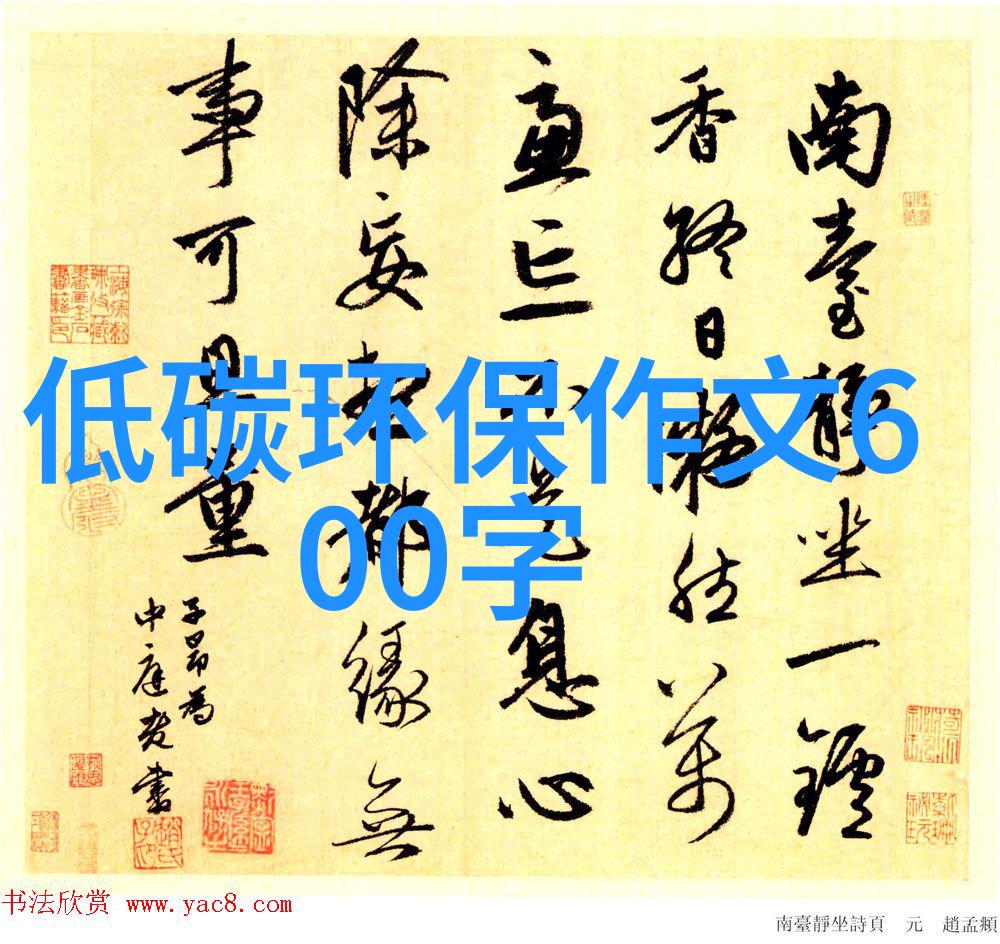 低碳环保作文6
00字
南臺靜坐一鑪
香終日凝然萬
慮亡不是息心
除妄想都緣無
事可思量
子昂為
中庭老書
书法欣赏 www.yac8.com
南臺靜坐詩頁 元 趙孟頫